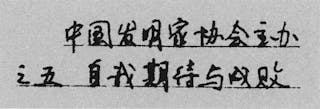 中国发明家协会主办
之五 自我期待与成败